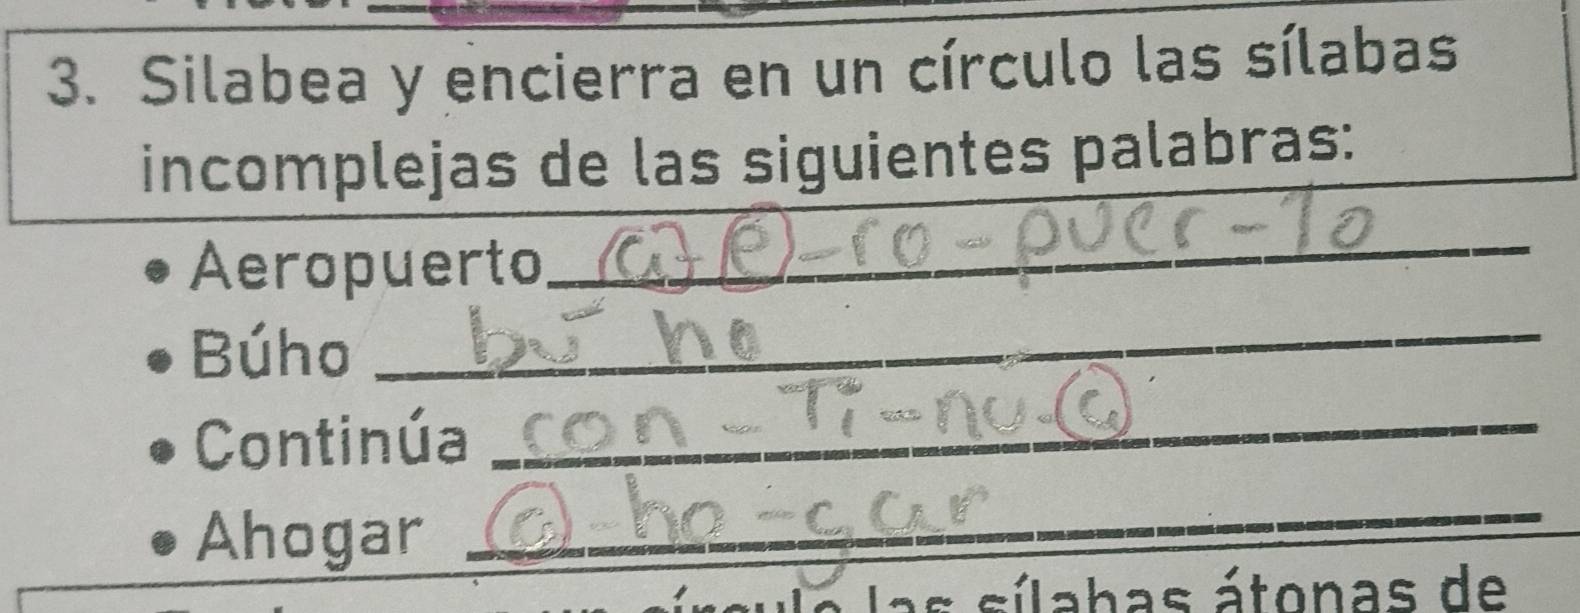 3. Silabea y encierra en un círculo las sílabas
incomplejas de las siguientes palabras:
• Aeropuerto a-e-ro-puer-to
• Búho bú ho
• Continúa con-Ti-nú-a
• Ahogar a-ho-gar
las sílabas átonas de